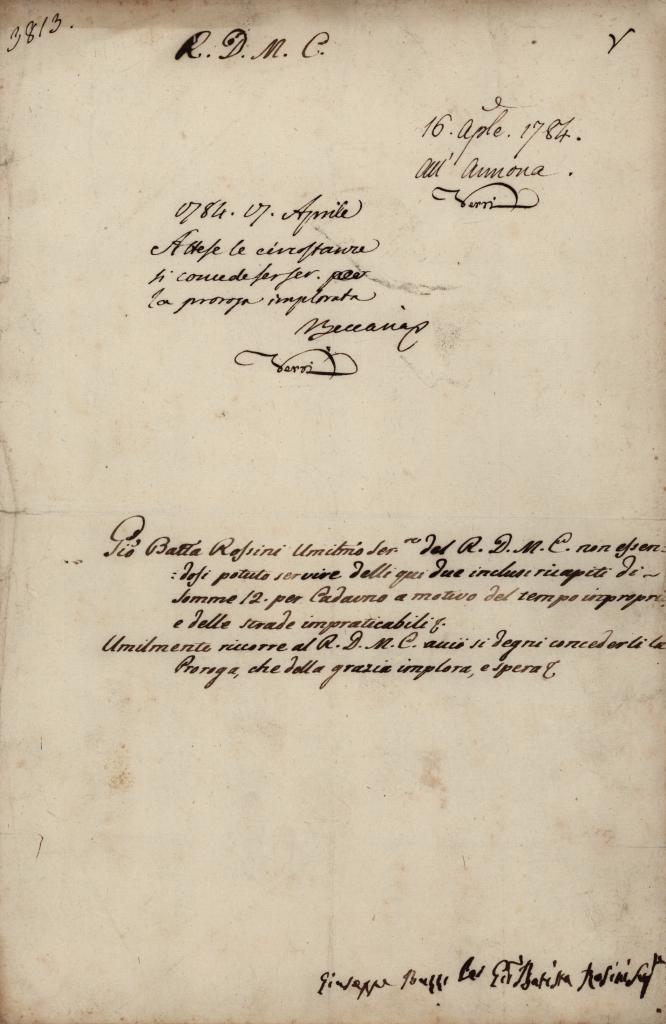 3813.
R. D. M. C.
16. Aple. 1784.
all' Annona.
Verri
1784. 17. Aprile
Attese le circostanze
si concede per
la proroga implorata
Beccaria
Verri
Gio Batta Rossini Umilmo Ser.re del R. D. M. C. non essen-
:dosi potuto servire delli qui due inclusi ricapiti di
Somme 12. per Cadauno a motivo del tempo inpropri
e delle strade impraticabili
Umilmente ricorre al R. D. M. C. acciò si degni concederli la
Proroga, che della grazia implora, e spera
Giuseppe Buzzi per Gio Batista Rosini